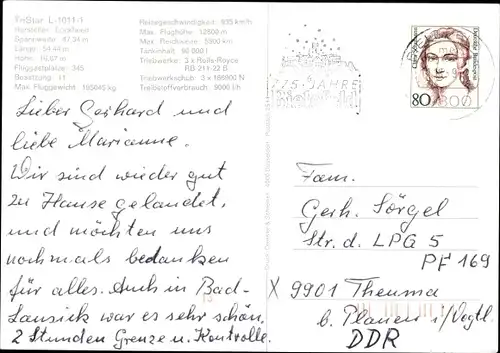 TriStar L-1011-1
Hersteller: Lockheed
Spannweite: 47,34 m
Länge: 54,44 m
Höhe: 16,87 m
Fluggastplätze: 345
Besatzung: 11
Max. Fluggewicht: 195045 kg
Reisegeschwindigkeit: 935 km/h
Max. Flughöhe: 12800 m
Max. Reichweite: 5900 km
Tankinhalt: 90 000 l
Triebwerke: 3 x Rolls-Royce
RB 211-22 B
Schubkraft: 3 x 186900 N
Treibstoffverbrauch: 9000 l/h
775 JAHRE
80
Lieber Gerhard und
liebe Marianne.
Wir sind wieder gut
zu Hause gelandet,
und möchten uns
nochmals bedanken
für alles. Auch in Bad-
Lausick war es sehr schön.
2 Stunden Grenze u. Kontrolle.
Fam.
Gerh. Sörgel
Str. d. LPG 5
PF 169
X 9901 Theuma
b. Plauen i/Vogtl.
DDR